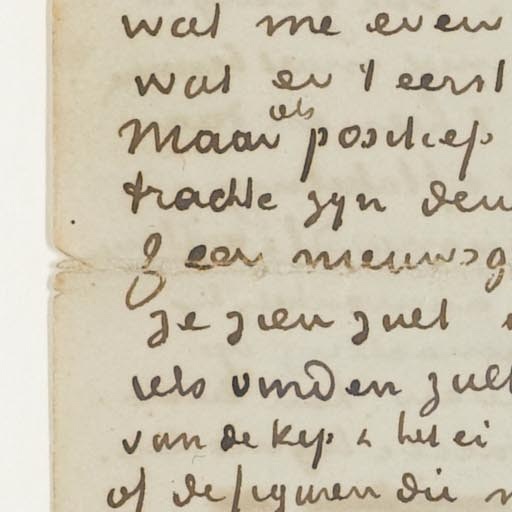 wat me even
wat er 't eerst
als
Maar positief
trachte zyn deu
Zeer nieuwsg
je zien zult
iets vinden zult
van de kip & het ei
of de figuren die